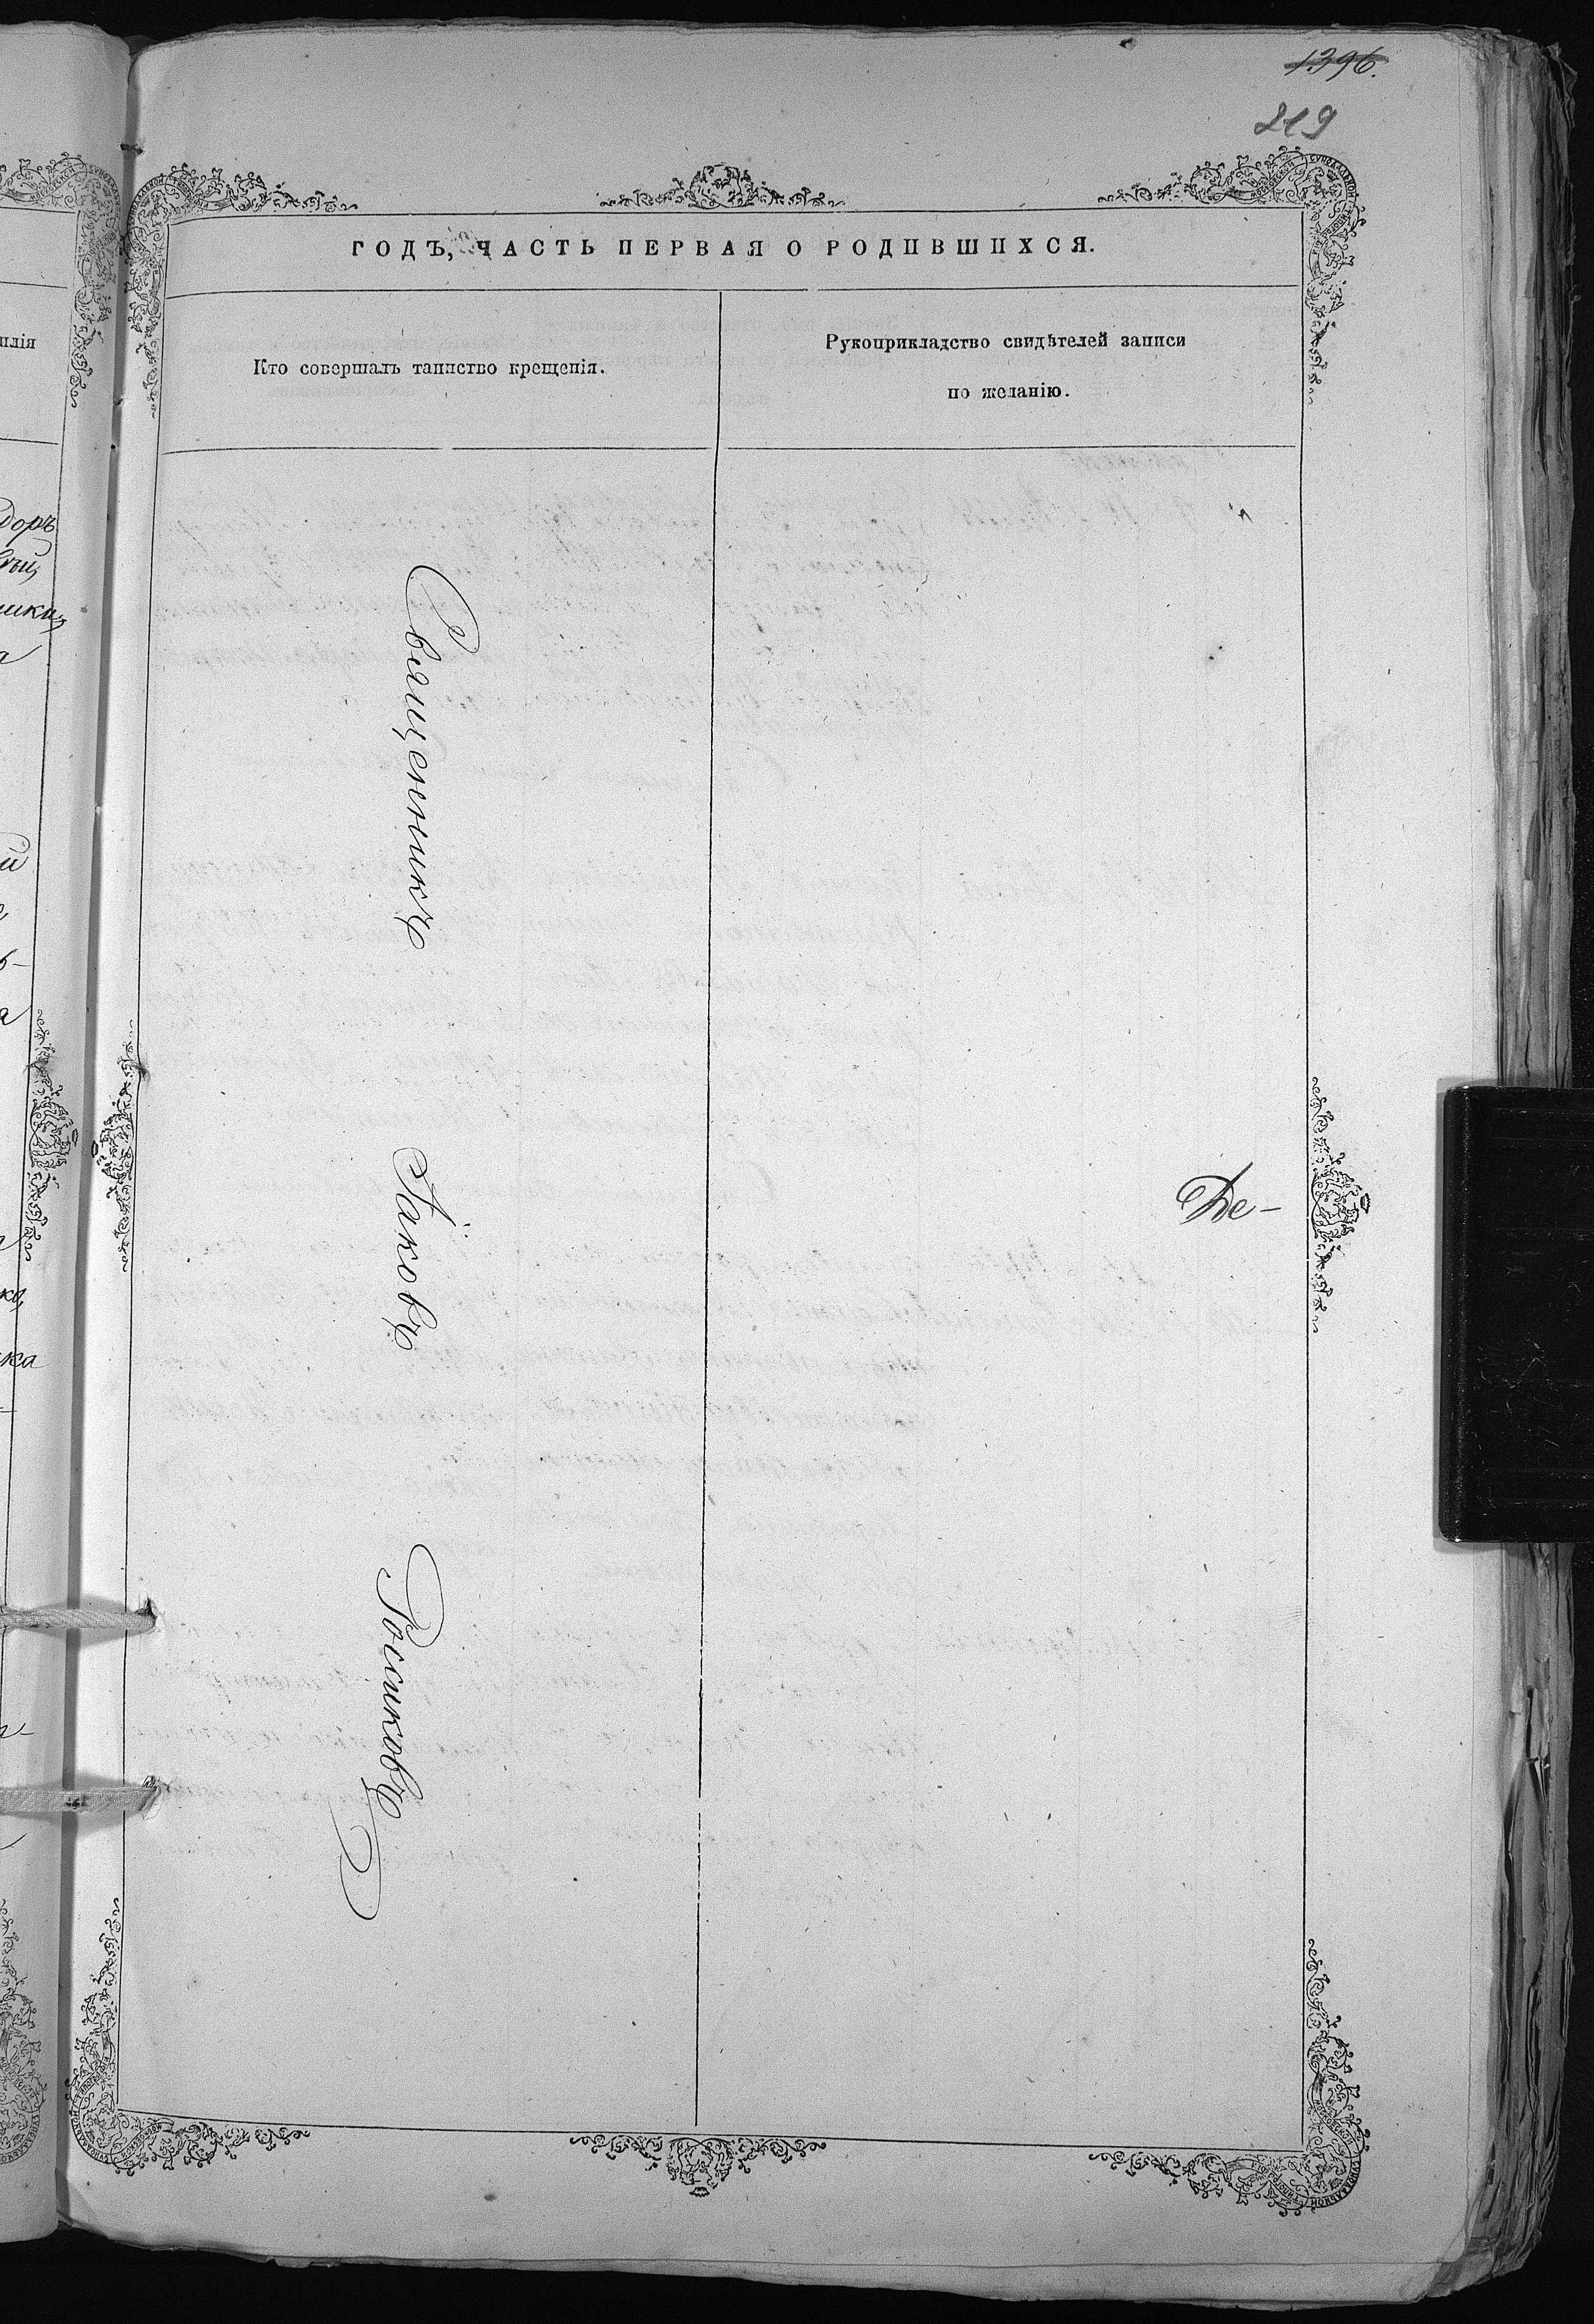 1396.
219
ГОДЪ, ЧАСТЬ ПЕРВАЯ О РОДИВШИХСЯ.
Кто совершалъ таинство крещенія.
Рукоприкладство свидѣтелей записи
по желанію.
Священникъ Іаковъ Росиковъ
Де-
илія
доръ
ка